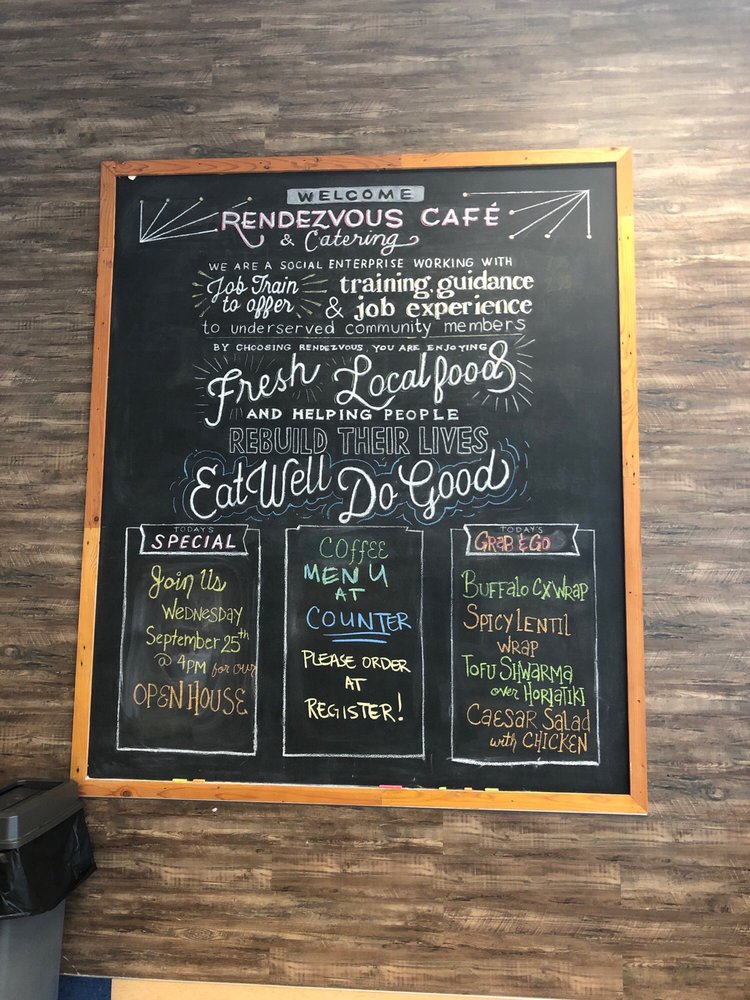 WELCOME
RENDEZVOUS CAFÉ
& Catering
WE ARE A SOCIAL ENTERPRISE WORKING WITH
Job Train training, guidance
to offer & job experience
to underserved community members
BY CHOOSING RENDEZVOUS, YOU ARE ENJOYING
Fresh Local foods
AND HELPING PEOPLE
REBUILD THEIR LIVES
Eat Well Do Good
TODAY'S
SPECIAL
Join Us
WEDNESDAY
September 25th
@ 4PM for our
OPEN HOUSE
COFFEE
MENU
AT
COUNTER
PLEASE ORDER
AT
REGISTER!
TODAY'S
GRAB & GO
BUFFALO CX WRAP
SPICY LENTIL
WRAP
TOFU SHWARMA
over HORIATIKI
CAESAR SALAD
with CHICKEN